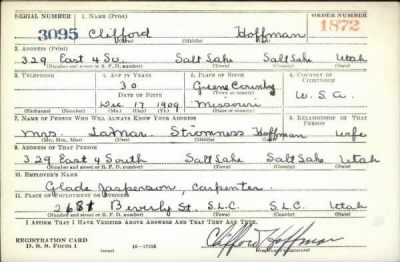 SERIAL NUMBER 1. NAME (Print) ORDER NUMBER
3095 Clifford Hoffman 1872
(First) (Middle) (Last)
2. ADDRESS (Print)
329 East 4 So. Salt Lake Salt Lake Utah
(Number and street or R. F. D. number) (Town) (County) (State)
3. TELEPHONE 4. AGE IN YEARS 5. PLACE OF BIRTH 6. COUNTRY OF CITIZENSHIP
30 Greene County
DATE OF BIRTH (Town or county)
Dec. 17 1909 Missouri U.S.A.
(Exchange) (Number) (Mo.) (Day) (Yr.) (State or country)
7. NAME OF PERSON WHO WILL ALWAYS KNOW YOUR ADDRESS 8. RELATIONSHIP OF THAT PERSON
Mrs. LaMar Stromness Hoffman wife
(Mr., Mrs., Miss) (First) (Middle) (Last)
9. ADDRESS OF THAT PERSON
329 East 4 South Salt Lake Salt Lake Utah
(Number and street or R. F. D. number) (Town) (County) (State)
10. EMPLOYER'S NAME
Glade Jasperson, Carpenter
11. PLACE OF EMPLOYMENT OR BUSINESS
Beverly St. S.L.C. S.L.C. Utah
(Number and street or R. F. D. number) (Town) (County) (State)
I AFFIRM THAT I HAVE VERIFIED ABOVE ANSWERS AND THAT THEY ARE TRUE.
REGISTRATION CARD
D. S. S. FORM 1 (over) 16-17105 Clifford Hoffman